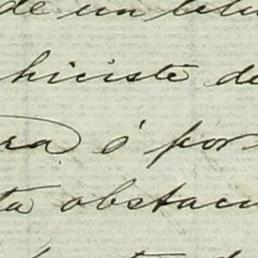 de un
hiciste de
ra ó por
ta obstacu